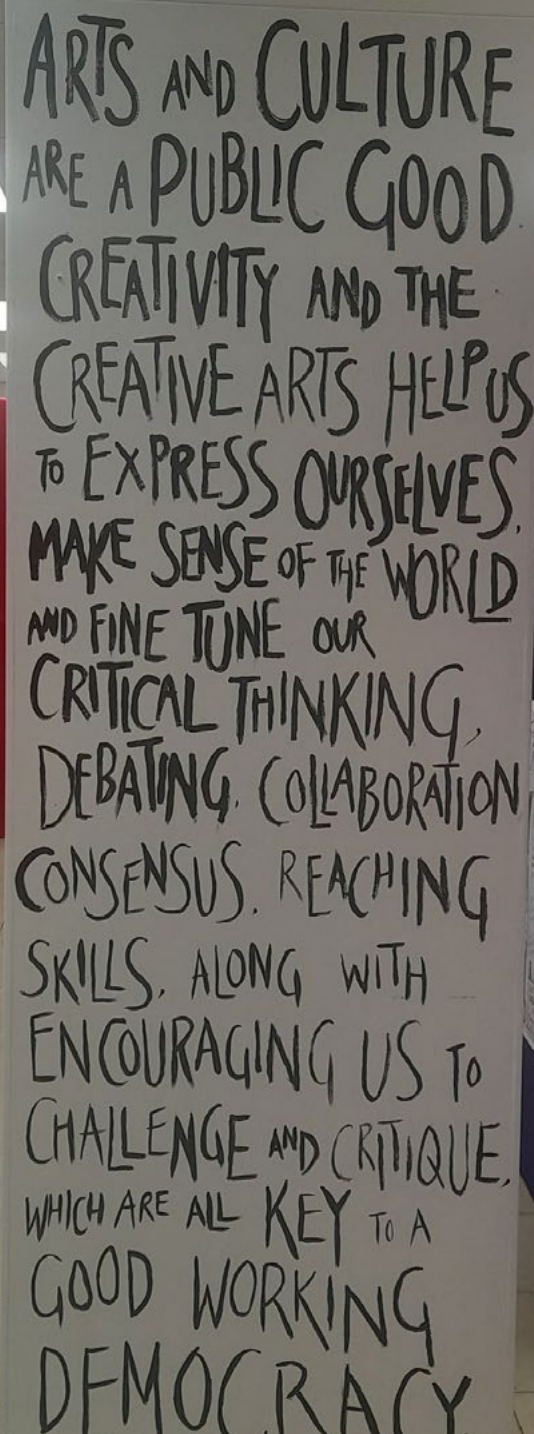 ARTS AND CULTURE
ARE A PUBLIC GOOD.
CREATIVITY AND THE
CREATIVE ARTS HELP US
TO EXPRESS OURSELVES,
MAKE SENSE OF THE WORLD
AND FINE TUNE OUR
CRITICAL THINKING,
DEBATING, COLLABORATION
CONSENSUS. REACHING
SKILLS, ALONG WITH
ENCOURAGING US TO
CHALLENGE AND CRITIQUE,
WHICH ARE ALL KEY TO A
GOOD WORKING
DEMOCRACY